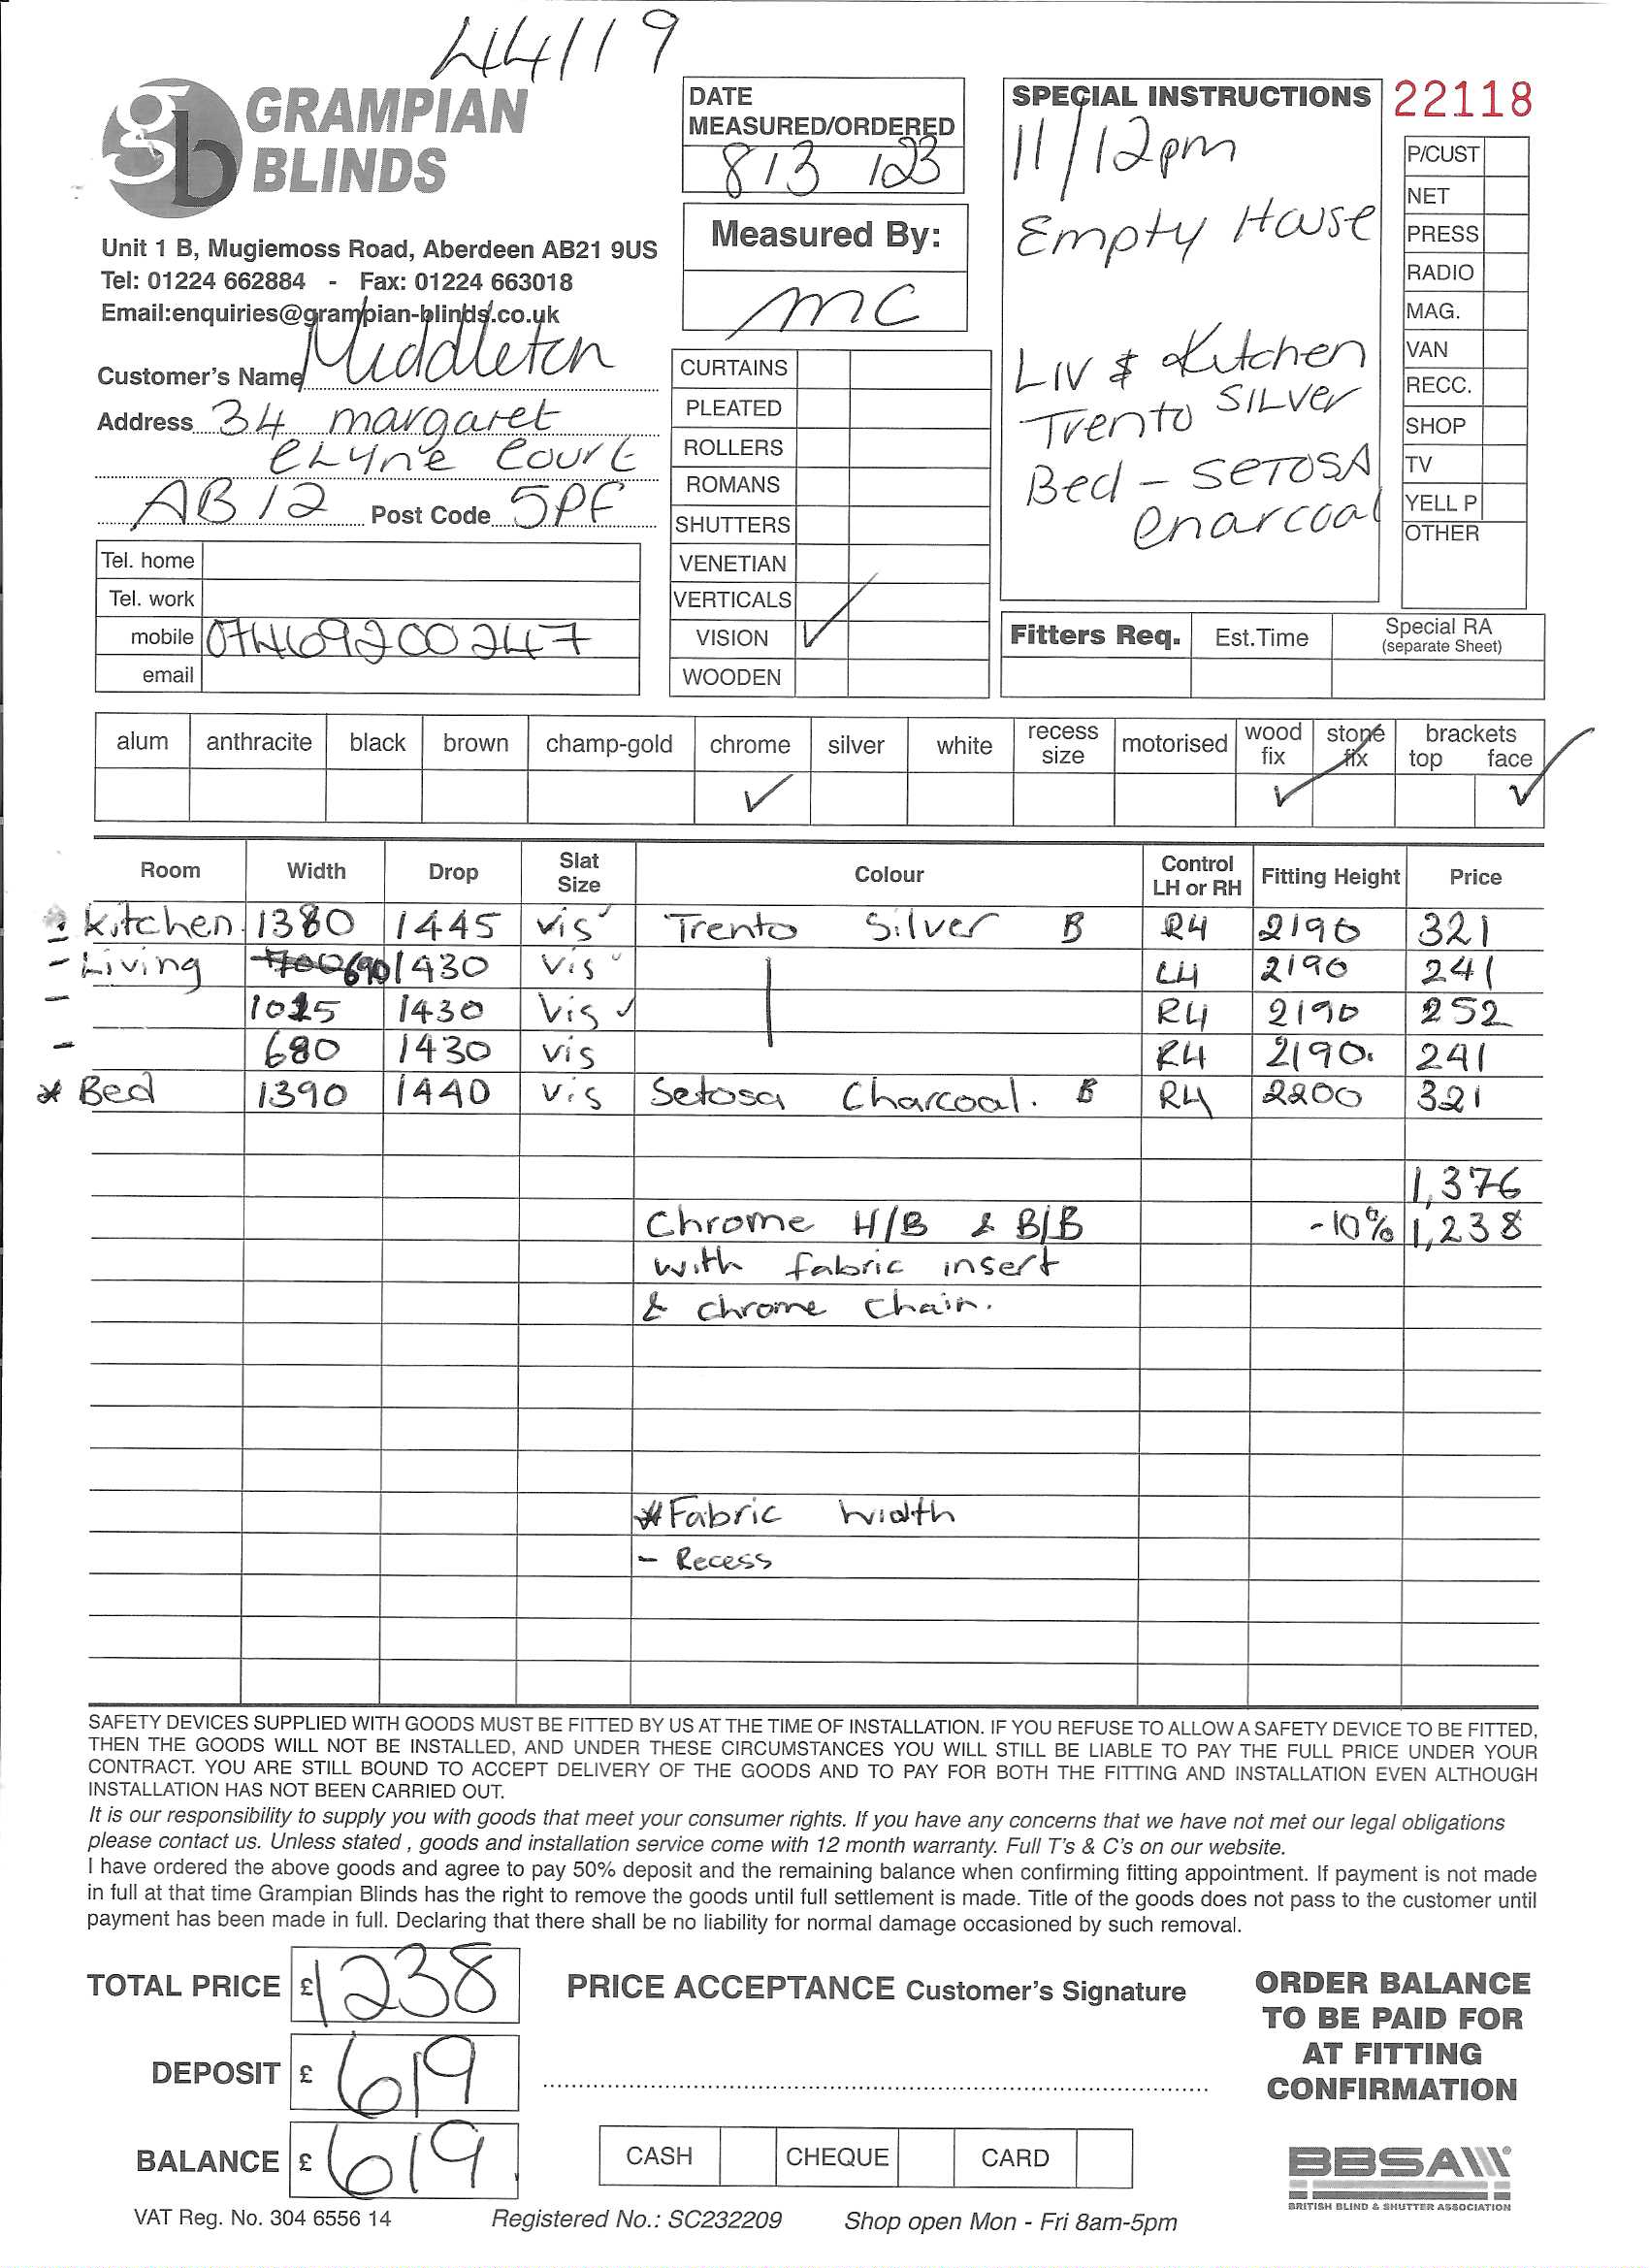 44119
GRAMPIAN
BLINDS
Unit 1 B, Mugiemoss Road, Aberdeen AB21 9US
Tel: 01224 662884 - Fax: 01224 663018
Email:enquiries@grampian-blinds.co.uk
Customer's Name Middleton
Address 34 margaret
CLyne Court
AB12 Post Code 5PF
Tel. home
Tel. work
mobile 07469200247
email
DATE
MEASURED/ORDERED
8/3/23
Measured By:
MC
CURTAINS
PLEATED
ROLLERS
ROMANS
SHUTTERS
VENETIAN
VERTICALS
VISION ✓
WOODEN
SPECIAL INSTRUCTIONS
11/12pm
Empty House
Liv & Kitchen
Trento SILVer
Bed - SETOSA
Charcoal
22118
P/CUST
NET
PRESS
RADIO
MAG.
VAN
RECC.
SHOP
TV
YELL P
OTHER
Fitters Req. Est.Time Special RA
(separate Sheet)
alum anthracite black brown champ-gold chrome silver white recess size motorised wood fix stone fix brackets top face
✓ ✓ ✓
Room Width Drop Slat Size Colour Control LH or RH Fitting Height Price
- Kitchen 1380 1445 vis Trento Silver B RH 2190 321
- Living 690 1430 Vis LH 2190 241
- 1015 1430 Vis ✓ RH 2190 252
- 680 1430 vis RH 2190. 241
* Bed 1390 1440 vis Setosa Charcoal. B RH 2200 321
1,376
Chrome H/B & B/B -10% 1,238
with fabric insert
& chrome chain.
* Fabric width
- Recess
SAFETY DEVICES SUPPLIED WITH GOODS MUST BE FITTED BY US AT THE TIME OF INSTALLATION. IF YOU REFUSE TO ALLOW A SAFETY DEVICE TO BE FITTED,
THEN THE GOODS WILL NOT BE INSTALLED, AND UNDER THESE CIRCUMSTANCES YOU WILL STILL BE LIABLE TO PAY THE FULL PRICE UNDER YOUR
CONTRACT. YOU ARE STILL BOUND TO ACCEPT DELIVERY OF THE GOODS AND TO PAY FOR BOTH THE FITTING AND INSTALLATION EVEN ALTHOUGH
INSTALLATION HAS NOT BEEN CARRIED OUT.
It is our responsibility to supply you with goods that meet your consumer rights. If you have any concerns that we have not met our legal obligations
please contact us. Unless stated , goods and installation service come with 12 month warranty. Full T's & C's on our website.
I have ordered the above goods and agree to pay 50% deposit and the remaining balance when confirming fitting appointment. If payment is not made
in full at that time Grampian Blinds has the right to remove the goods until full settlement is made. Title of the goods does not pass to the customer until
payment has been made in full. Declaring that there shall be no liability for normal damage occasioned by such removal.
TOTAL PRICE £1238
DEPOSIT £ 619
BALANCE £ 619
PRICE ACCEPTANCE Customer's Signature
CASH CHEQUE CARD
ORDER BALANCE
TO BE PAID FOR
AT FITTING
CONFIRMATION
BBSA
BRITISH BLIND & SHUTTER ASSOCIATION
VAT Reg. No. 304 6556 14 Registered No.: SC232209 Shop open Mon - Fri 8am-5pm